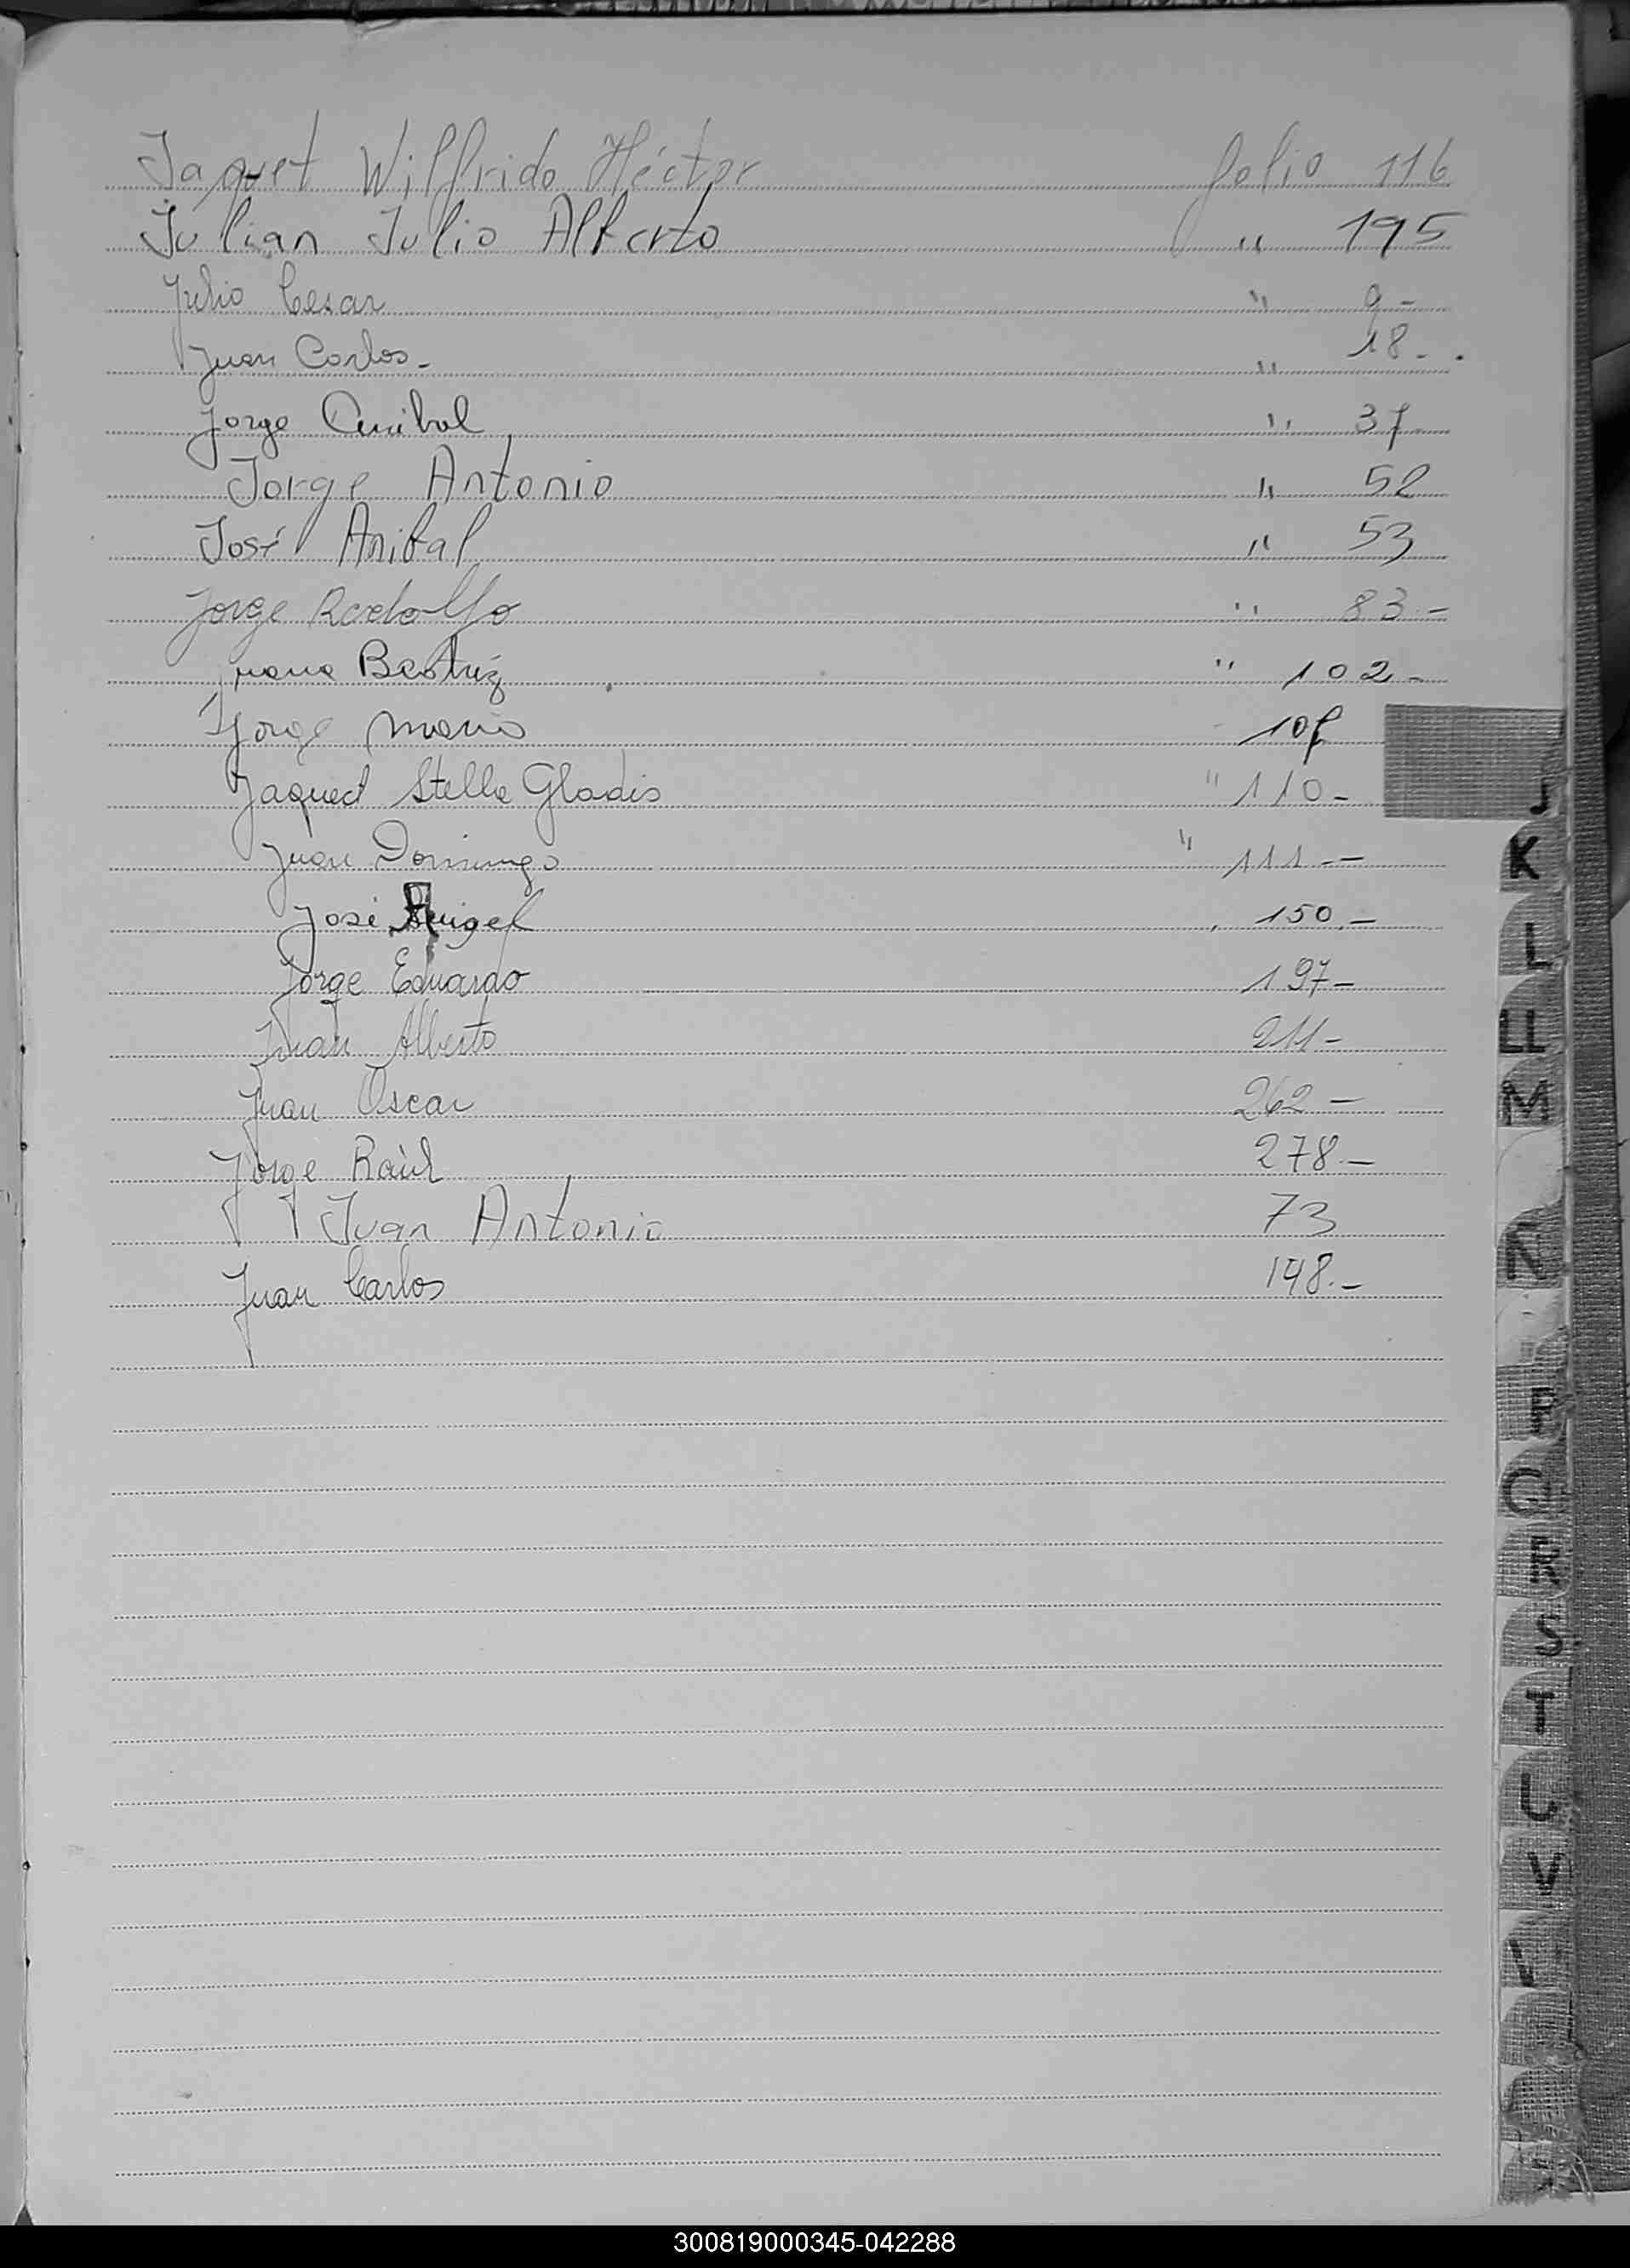 Jaquet Wilfrido Héctor folio 116
Julian Julio Alberto " 195
Julio Cesar " 9-
Juan Carlos- " 18-.
Jorge Anibal " 37
Jorge Antonio " 52
José Anibal " 53
Jorge Rodolfo " 83-
Juana Beatriz " 102-
Jorge Mario 107
Jaquet Stella Gladis " 110-
Juan Domingo " 111--
José Angel 150,-
Jorge Eduardo 197-
Juan Alberto 211-
Juan Oscar 262-
Jorge Raúl 278.-
Juan Antonio 73
Juan Carlos 148.-
J
K
L
LL
M
N
P
Q
R
S
T
U
V
300819000345-042288